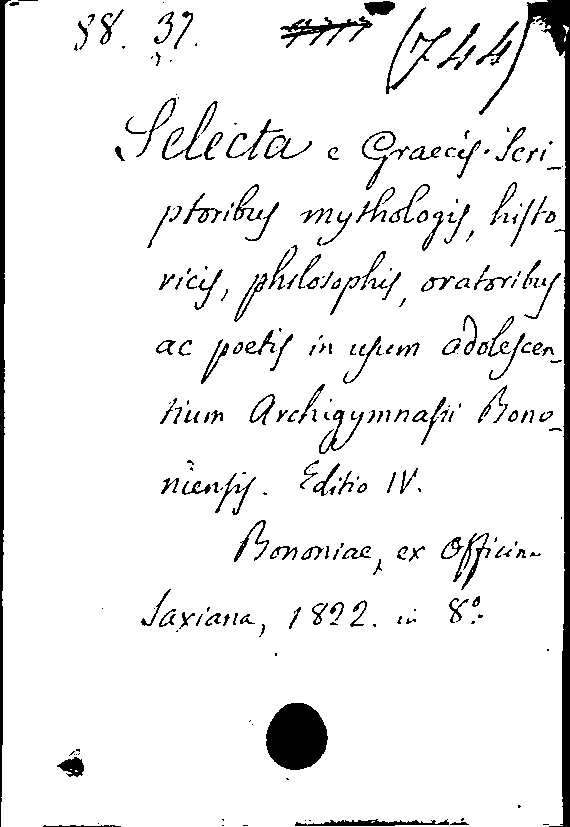 88. 37. (744)
Selecta e Graecis Scri-
ptoribus mythologis, histo-
ricis, philosophis, oratoribus
ac poetis in usum adolescen-
tium Archigymnasii Bono-
niensis. Editio IV.
Bononiae, ex Officina
Saxiana, 1822. in 8º.